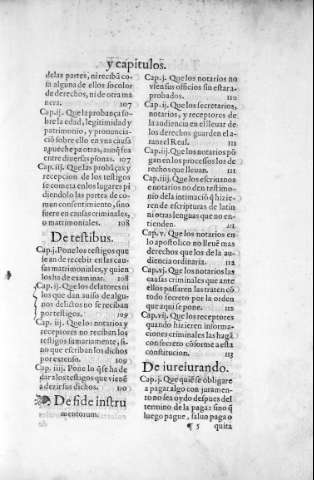 y capitulos.
de las partes, ni recibã co
sa alguna de ellos so color
de derechos, ni de otra ma
nera. 107
Cap. ij. Que la probança so-
bre la edad, legitimidad y
patrimonio, y pronuncia-
ciõ sobre ello en vna causa
apueche pa otras, aunq̃ sea
entre diuersas p̃sonas. 107
Cap. iij. Que las probãças y
recepcion de los testigos
se cometa en los lugares pi
diendolo las partes de co-
mun consentimiento, sino
fuere en causas criminales,
o matrimoniales. 108
De testibus.
Cap. j. Pone los testigos que
se an de recebir en las cau-
sas matrimoniales, y quien
los ha de examinar. 108
Cap. ij. Que los delatores ni
los que dan auiso de algu-
nos delictos no se reciban
por testigos. 109
Cap. iij. Que los notarios y
receptores no reciban los
testigos sumariamente, si-
no que escriban los dichos
por extenso. 109
Cap. iiij. Pone lo q̃ se ha de
dar a los testigos que vienẽ
a dezir sus dichos. 110
De fide instru
mentorum.
Cap. j. Que los notarios no
vsen sus officios sin estar a-
probados. 110
Cap. ij. Que los secretarios,
notarios, y receptores de
la audiencia en el lleuar de
los derechos guarden el a-
ranzel Real. 111
Cap. iij. Que los notarios põ
gan en los processos los de-
rechos que lleuan. 111
Cap. iiij. Que los escriuanos
e notarios no den testimo-
nio de la intimaciõ q̃ hizie-
ren de escripturas de latin
ni otra lengua que no en-
tienden. 111
Cap. v. Que los notarios en
lo apostolico no lleuẽ mas
derechos que los de la au-
diencia ordinaria. 112
Cap. vj. Que los notarios las
causas criminales que ante
ellos passaren las traten cõ
todo secreto por la orden
que aqui se pone. 112
Cap. vij. Que los receptores
quando hizieren informa-
ciones criminales las hagã
con secreto cõforme a esta
constitucion. 113
De iureiurando.
Cap. j. Que quiẽ se obligare
a pagar algo con juramen-
to no sea oydo despues del
termino de la paga: sino q̃
luego pague, saluo paga o
¶ 5 quita